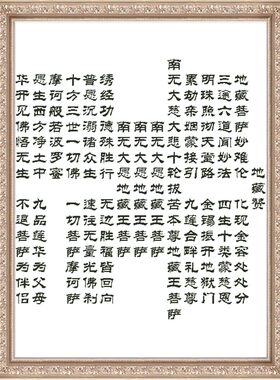 地藏赞
地藏菩萨妙难伦 化现金容处处分
三途六道闻妙法 四生十类蒙慈恩
明珠照彻天堂路 金锡振开地狱门
累劫亲姻蒙接引 九莲台畔礼慈尊
南无大慈大悲十轮拔苦本尊地藏王菩萨
南无大愿地藏王菩萨
南无大愿地藏王菩萨
南无大愿地藏王菩萨
绣经功德殊胜行 无边胜福皆回向
普愿沉溺诸众生 速往无量光佛刹
十方三世一切佛 一切菩萨摩诃萨
摩诃般若波罗蜜
愿生西方净土中 九品莲华为父母
华开见佛悟无生 不退菩萨为伴侣